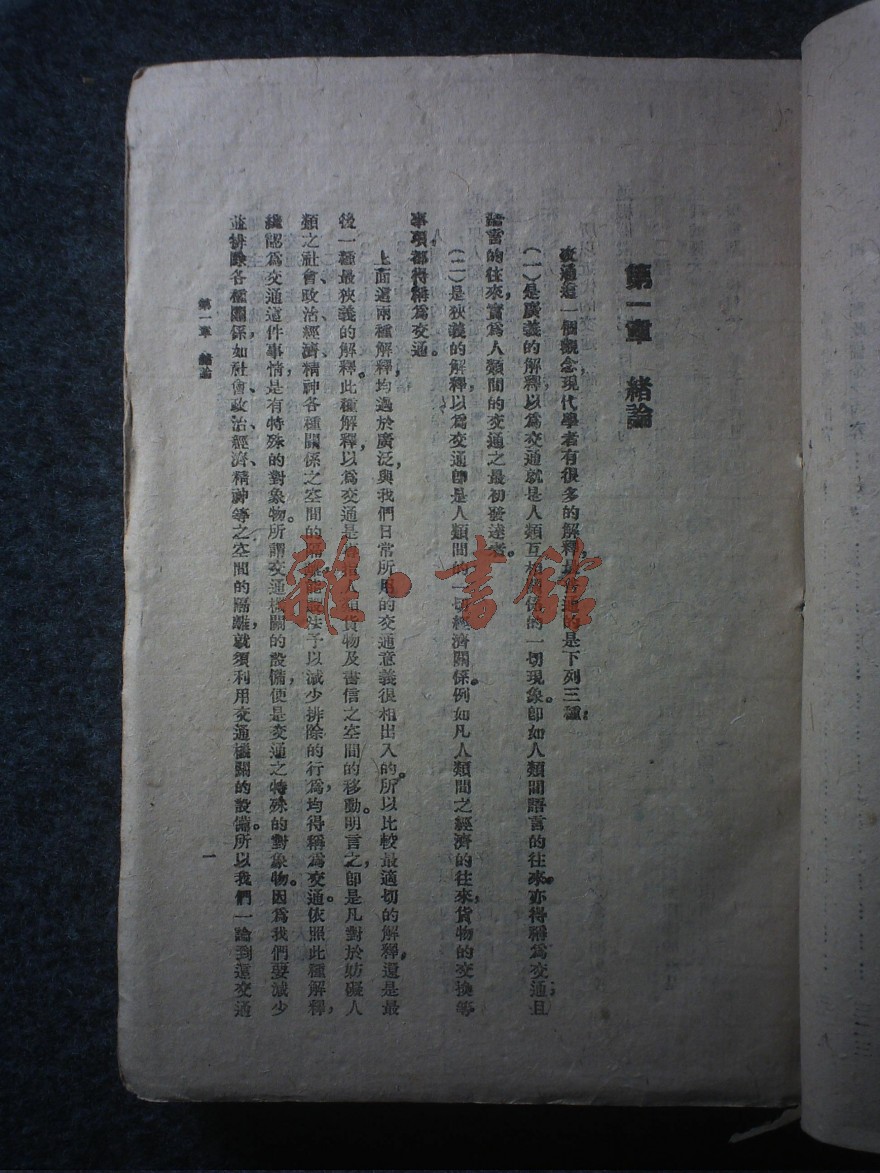 第一章　緒論
交通這一個觀念，現代學者有很多的解釋，最普通的是下列三種：
（一）是廣義的解釋，以為交通就是人類互相關係的一切現象。即如人類間語言的往來，亦得稱為交通；且
語言的往來，實為人類間的交通之最初發達者。
（二）是狹義的解釋，以為交通即是人類間的一切經濟關係。例如凡人類間之經濟的往來，貨物的交換等
事項，都得稱為交通。
上面這兩種解釋，均過於廣泛，與我們日常所用的交通意義很相出入的。所以比較最適切的解釋，還是最
後一種最狹義的解釋。此種解釋，以為交通是人類貨物及書信之空間的移動。明言之，即是凡對於妨礙人
類之社會、政治、經濟、精神各種關係之空間的隔離，能設法予以減少排除的行為，均得稱為交通。依照此種解釋，
纔認為交通這件事情，是有特殊的對象物。所謂交通機關的設備，便是交通之特殊的對象物。因為我們要減少
並排除各種關係，如社會、政治、經濟、精神等之空間的隔離，就須利用交通機關的設備。所以我們一論到這交通
第一章　緒論
一
雜·書館